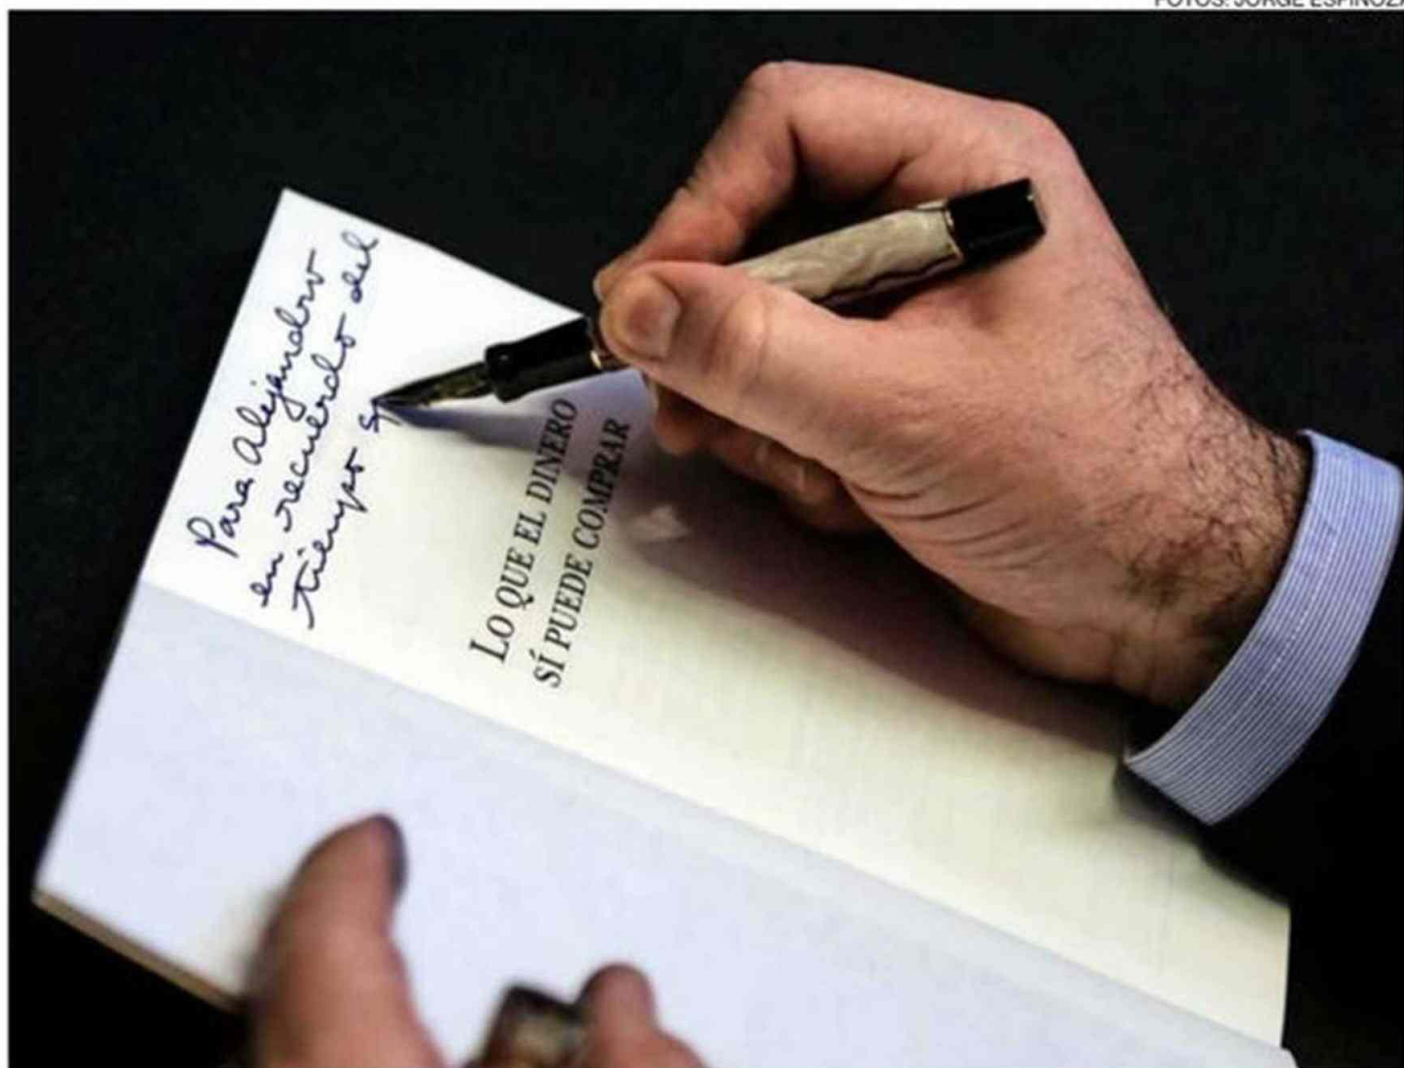 FOTOS: JORGE ESPINOZA
Para Alejandro
en recuerdo del
tiempo
LO QUE EL DINERO
SÍ PUEDE COMPRAR